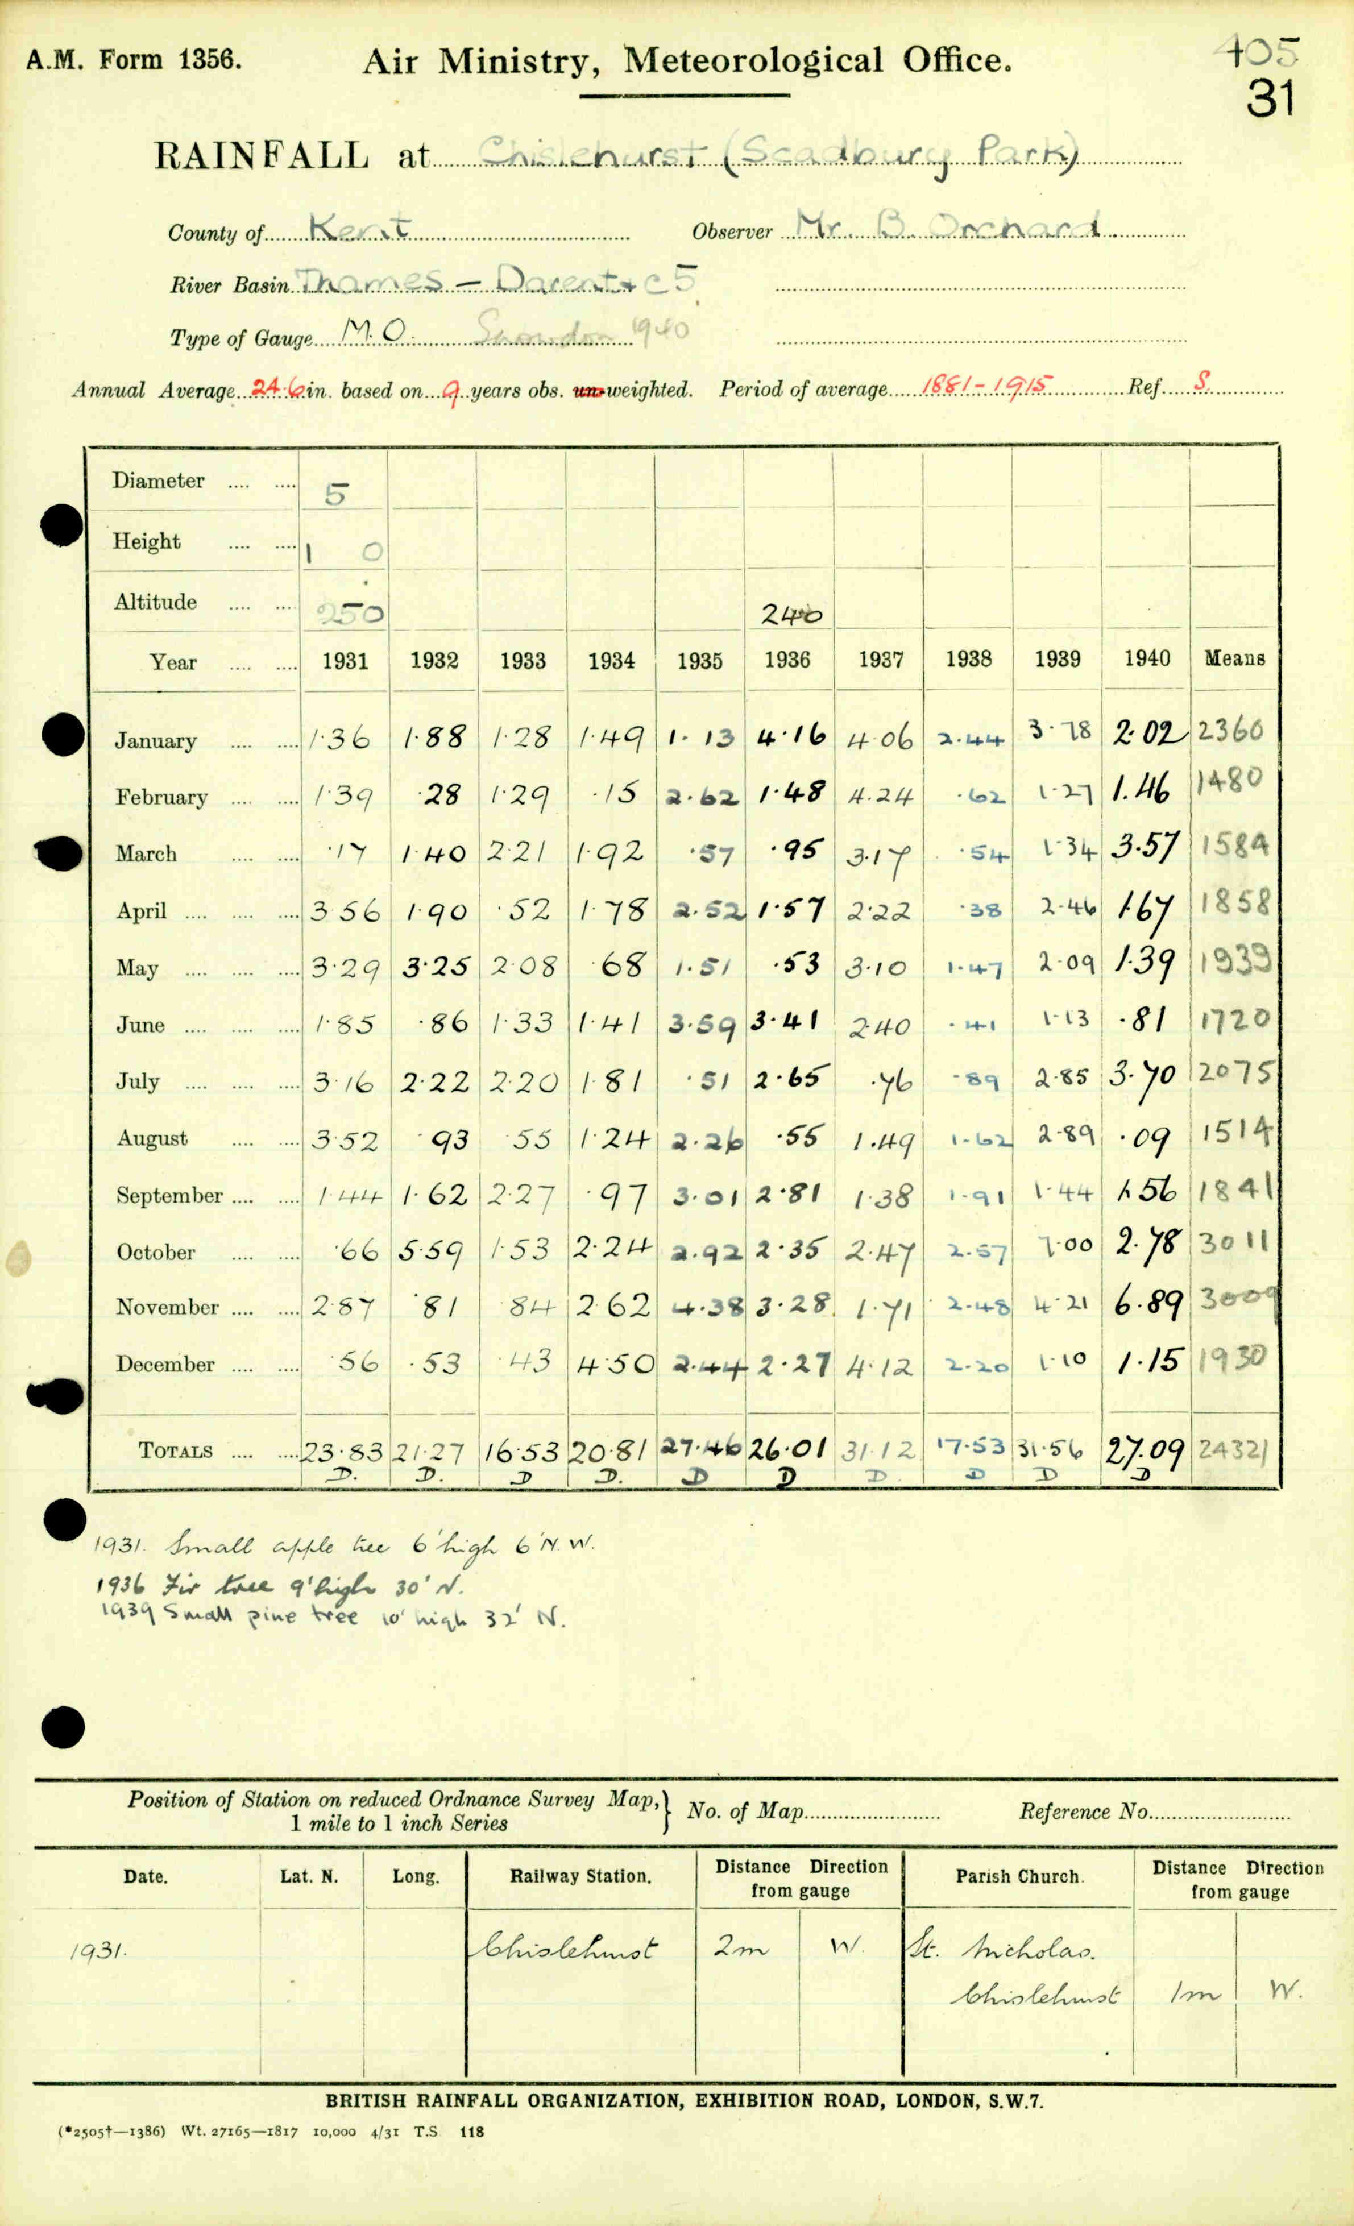 A.M. Form 1356. Air Ministry, Meteorological Office. 405
31
RAINFALL at Chislehurst (Scadbury Park)
County of Kent Observer Mr. B. Orchard
River Basin Thames – Darent + C5
Type of Gauge M.O. Snowdon 1940
Annual Average 24.6 in. based on 9 years obs. un-weighted. Period of average 1881-1915 Ref. S.
Diameter 5
Height 1 0
Altitude 250 240
Year 1931 1932 1933 1934 1935 1936 1937 1938 1939 1940 Means
January 1.36 1.88 1.28 1.49 1.13 4.16 4.06 2.44 3.78 2.02 2360
February 1.39 .28 1.29 .15 2.62 1.48 4.24 .62 1.27 1.46 1480
March .17 1.40 2.21 1.92 .57 .95 3.17 .54 1.34 3.57 1584
April 3.56 1.90 .52 1.78 2.52 1.57 2.22 .38 2.46 1.67 1858
May 3.29 3.25 2.08 .68 1.51 .53 3.10 1.47 2.09 1.39 1939
June 1.85 .86 1.33 1.41 3.59 3.41 2.40 .41 1.13 .81 1720
July 3.16 2.22 2.20 1.81 .51 2.65 .76 .89 2.85 3.70 2075
August 3.52 .93 .55 1.24 2.26 .55 1.49 1.62 2.89 .09 1514
September 1.44 1.62 2.27 .97 3.01 2.81 1.38 1.91 1.44 1.56 1841
October .66 5.59 1.53 2.24 2.92 2.35 2.47 2.57 7.00 2.78 3011
November 2.87 .81 .84 2.62 4.38 3.28 1.71 2.48 4.21 6.89 3009
December .56 .53 .43 4.50 2.44 2.27 4.12 2.20 1.10 1.15 1930
TOTALS 23.83 21.27 16.53 20.81 27.46 26.01 31.12 17.53 31.56 27.09 24321
D. D. D D. D D D. D D D
1931. Small apple tree 6' high 6' N.W.
1936 Fir tree 9' high 30' N.
1939 Small pine tree 10' high 32' N.
Position of Station on reduced Ordnance Survey Map, 1 mile to 1 inch Series } No. of Map Reference No.
Date. Lat. N. Long. Railway Station. Distance Direction from gauge Parish Church. Distance Direction from gauge
1931. Chislehurst 2m W. St. Nicholas.
Chislehurst 1m W.
BRITISH RAINFALL ORGANIZATION, EXHIBITION ROAD, LONDON, S.W.7.
(*2505†—1386) Wt. 27165—1817 10,000 4/31 T.S. 118